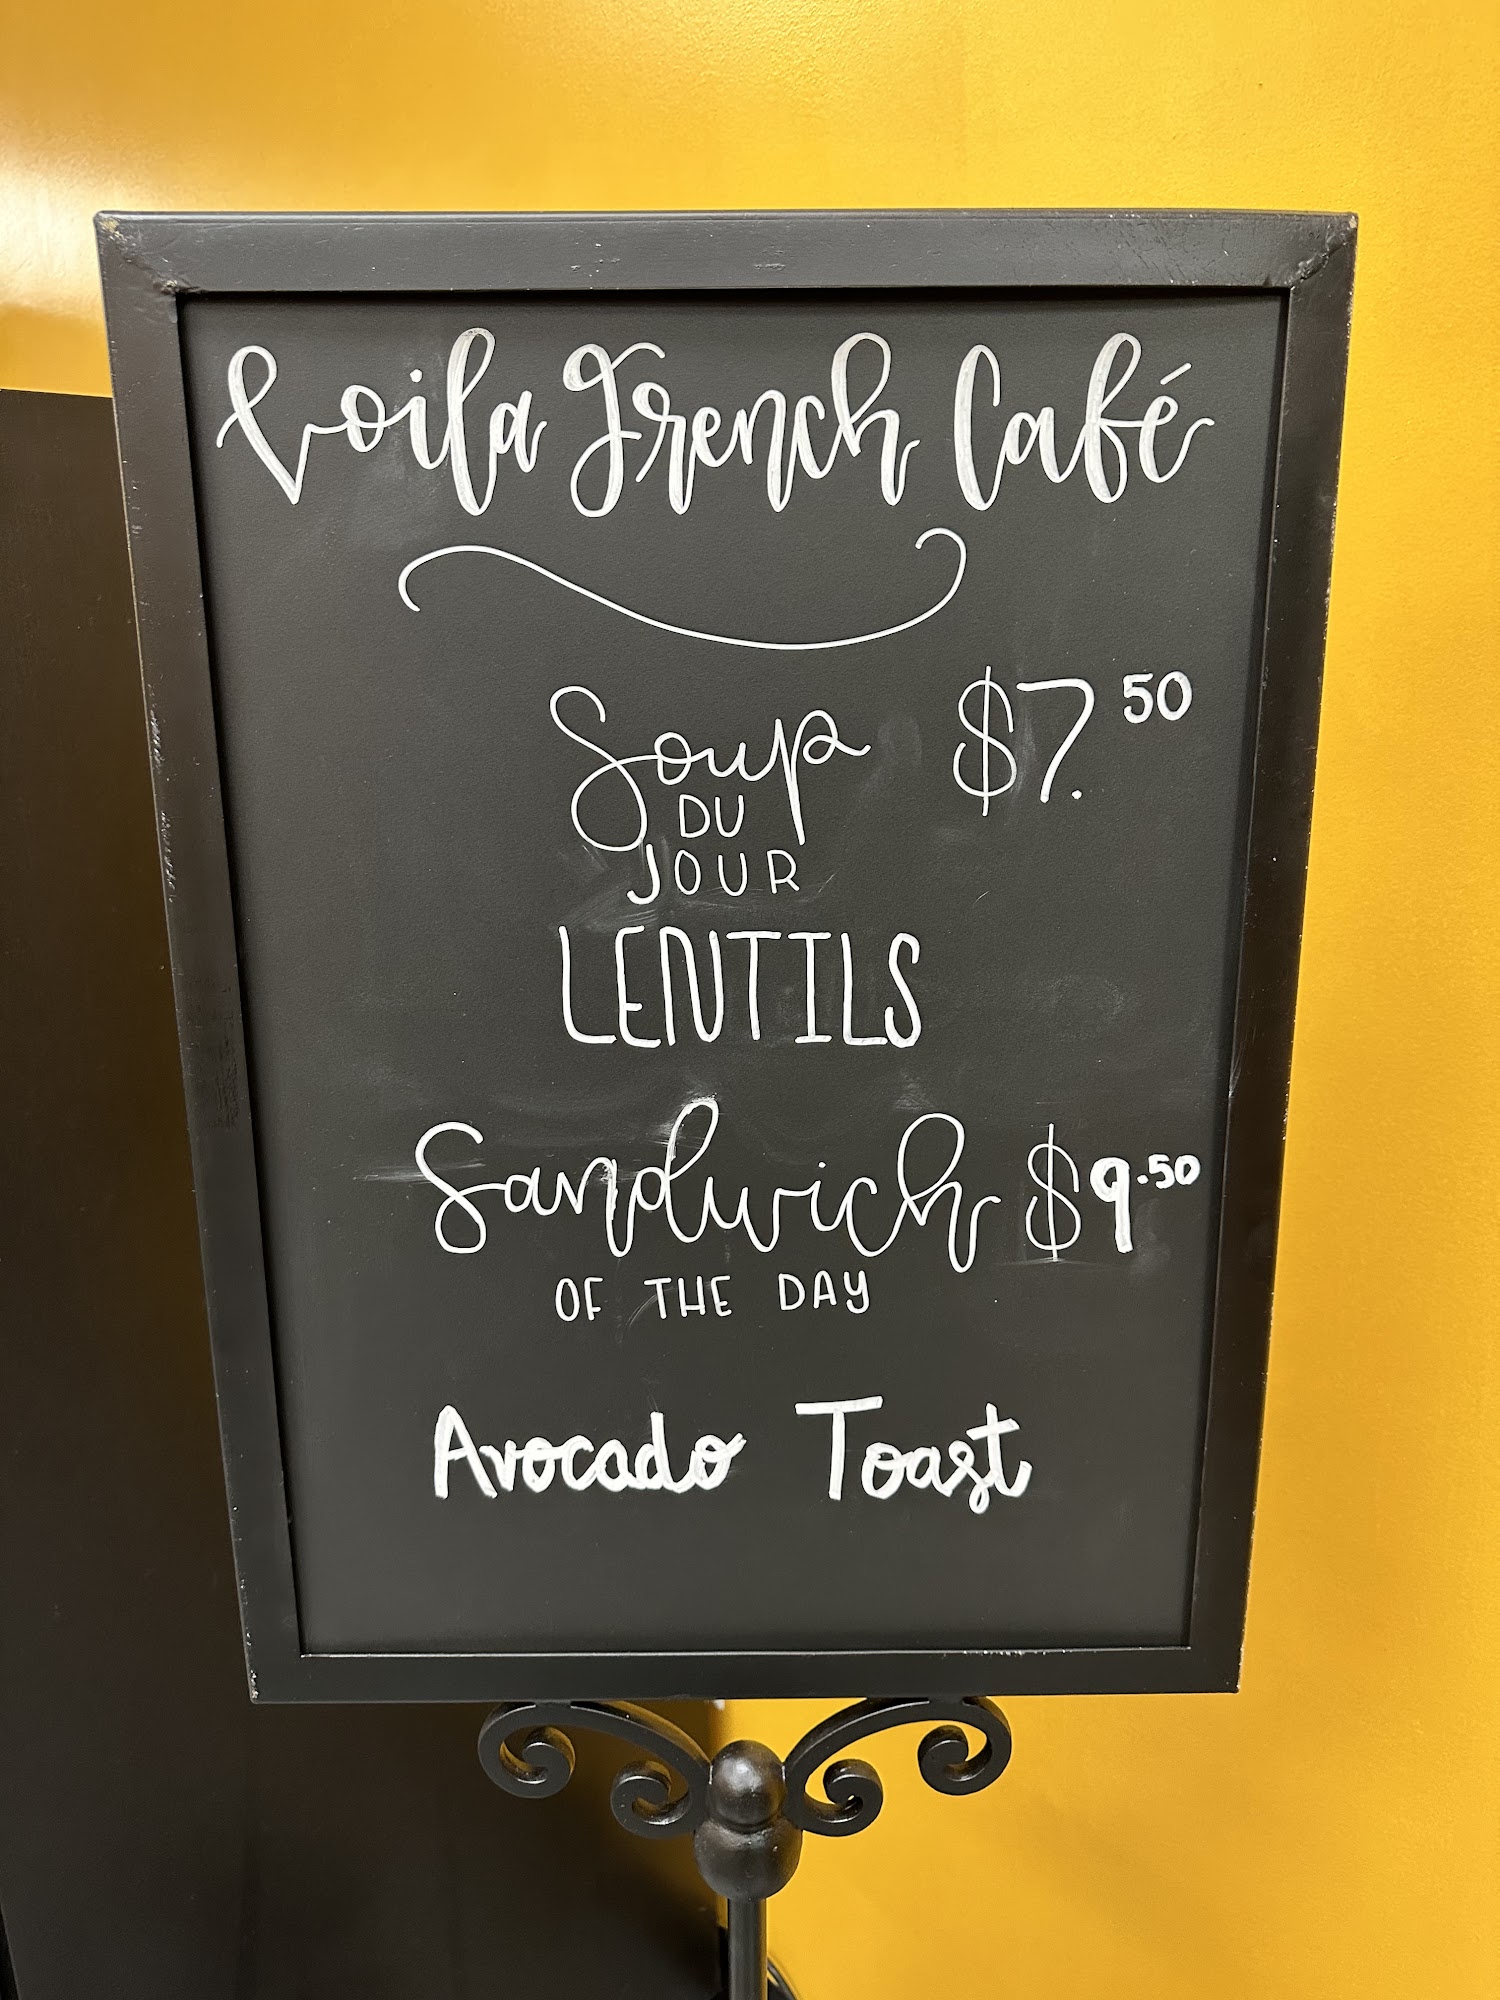 Voila French Café
Soup $7.50
DU
JOUR
LENTILS
Sandwich $9.50
OF THE DAY
Avocado Toast